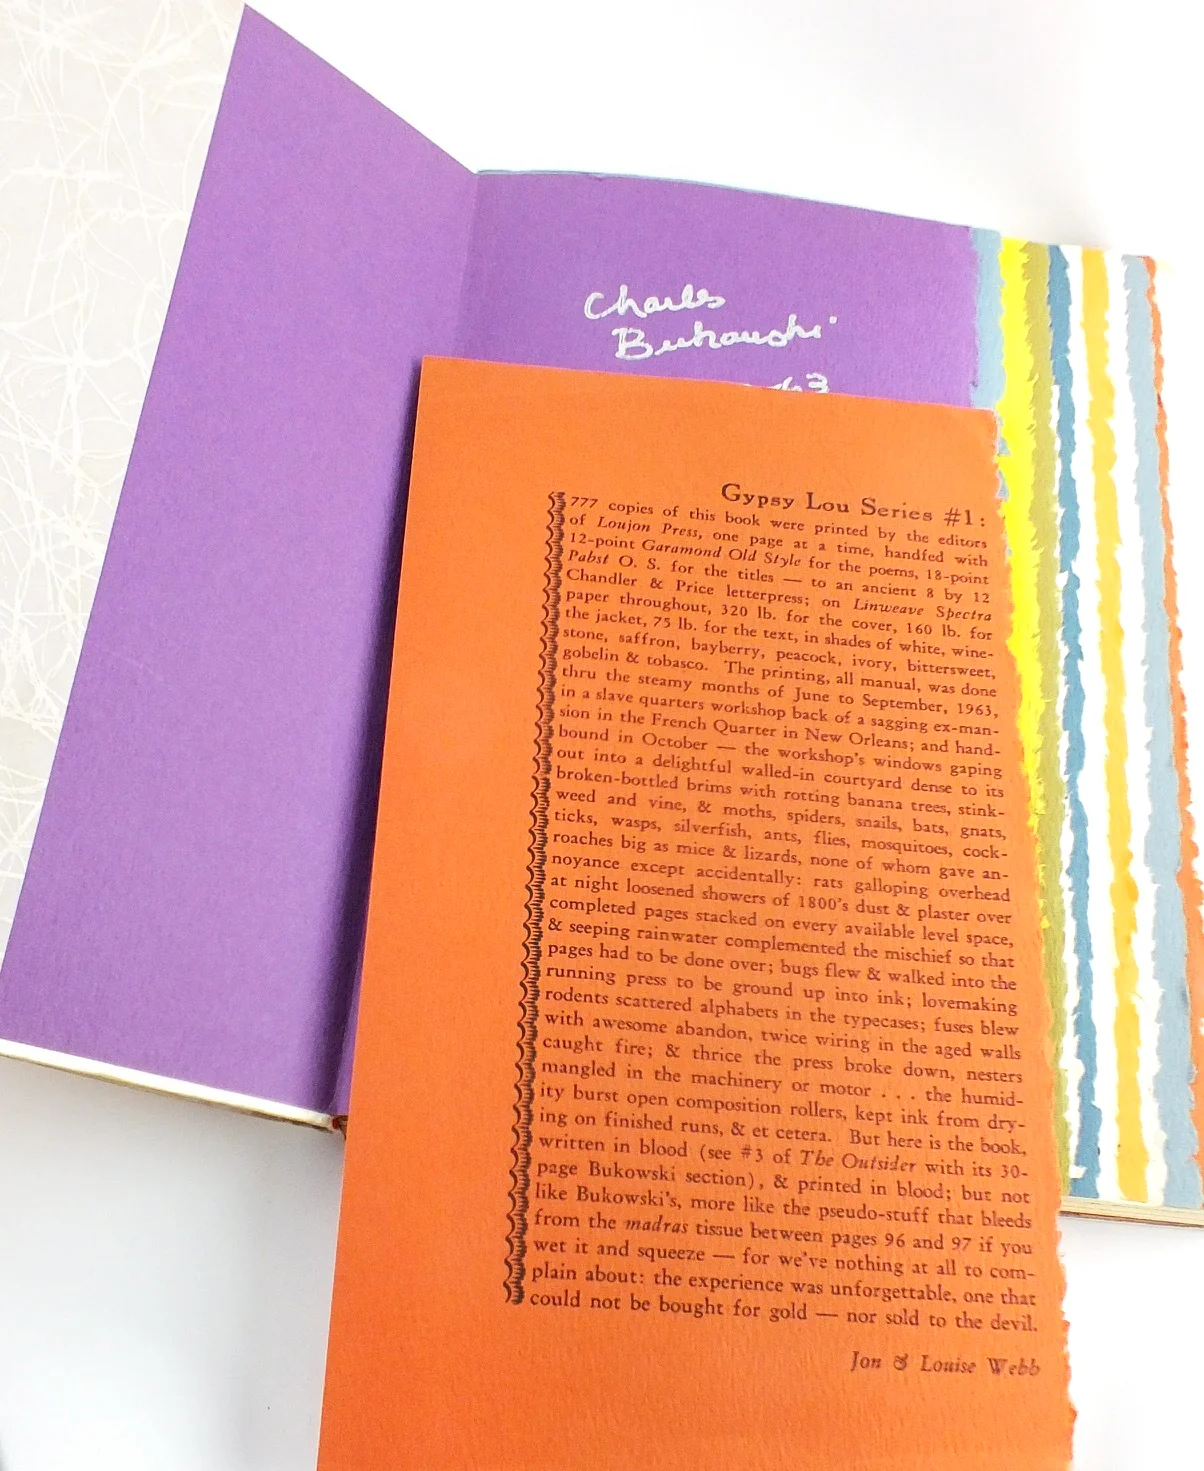 Charles
Bukowski
63
Gypsy Lou Series #1:
777 copies of this book were printed by the editors
of Loujon Press, one page at a time, handfed with
12-point Garamond Old Style for the poems, 18-point
Pabst O. S. for the titles — to an ancient 8 by 12
Chandler & Price letterpress; on Linweave Spectra
paper throughout, 320 lb. for the cover, 160 lb. for
the jacket, 75 lb. for the text, in shades of white, wine-
stone, saffron, bayberry, peacock, ivory, bittersweet,
gobelin & tobacco. The printing, all manual, was done
thru the steamy months of June to September, 1963,
in a slave quarters workshop back of a sagging ex-man-
sion in the French Quarter in New Orleans; and hand-
bound in October — the workshop's windows gaping
out into a delightful walled-in courtyard dense to its
broken-bottled brims with rotting banana trees, stink-
weed and vine, & moths, spiders, snails, bats, gnats,
ticks, wasps, silverfish, ants, flies, mosquitoes, cock-
roaches big as mice & lizards, none of whom gave an-
noyance except accidentally: rats galloping overhead
at night loosened showers of 1800's dust & plaster over
completed pages stacked on every available level space,
& seeping rainwater complemented the mischief so that
pages had to be done over; bugs flew & walked into the
running press to be ground up into ink; lovemaking
rodents scattered alphabets in the typecases; fuses blew
with awesome abandon, twice wiring in the aged walls
caught fire; & thrice the press broke down, nesters
mangled in the machinery or motor . . . the humid-
ity burst open composition rollers, kept ink from dry-
ing on finished runs, & et cetera. But here is the book,
written in blood (see #3 of The Outsider with its 30-
page Bukowski section), & printed in blood; but not
like Bukowski's, more like the pseudo-stuff that bleeds
from the madras tissue between pages 96 and 97 if you
wet it and squeeze — for we've nothing at all to com-
plain about: the experience was unforgettable, one that
could not be bought for gold — nor sold to the devil.
Jon & Louise Webb